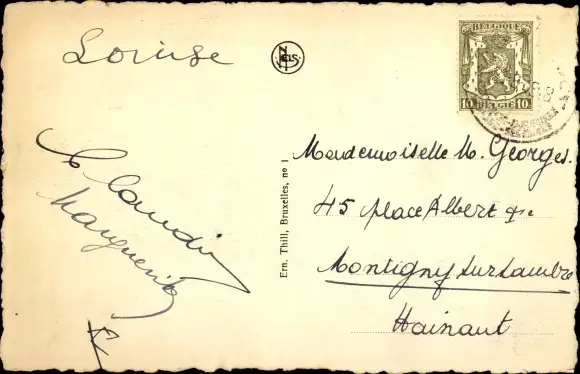 Louise
Claudie
Marguerite
NELS
Ern. Thill, Bruxelles, no 1
BELGIQUE
10 BELGIË 10
Mademoiselle M. Georges.
45 place Albert 1er
Montigny sur Sambre
Hainaut